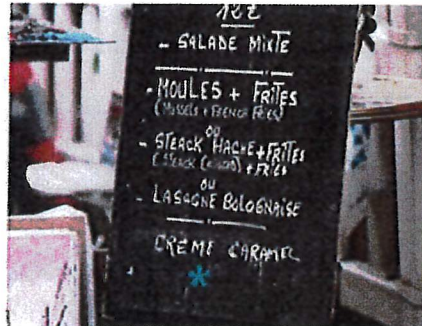 12€
- SALADE MIXTE
- MOULES + FRITES
(MUSSELS + FRENCH FRIES)
OU
- STEACK HACHE + FRITES
+ FRIES
OU
- LASAGNE BOLOGNAISE
CRÈME CARAMEL